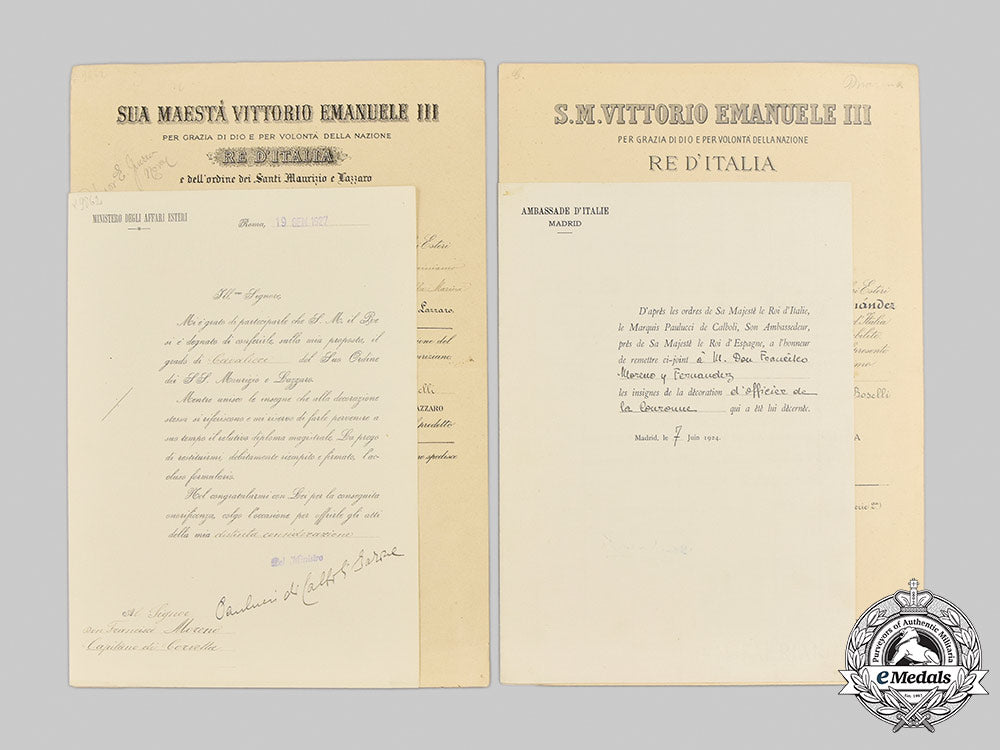 SUA MAESTÁ VITTORIO EMANUELE III
PER GRAZIA DI DIO E PER VOLONTÀ DELLA NAZIONE
RE D'ITALIA
e dell'ordine dei Santi Maurizio e Lazzaro
MINISTERO DEGLI AFFARI ESTERI
Roma, 19 GEN 1927
Ill.mo Signore,
Mi è grato di parteciparle che S. M. il Re
si è degnato di conferirle sulla mia proposta, il
grado di Cavaliere del Suo Ordine
dei SS. Maurizio e Lazzaro.
Mentre unisco le insegne che alla decorazione
stessa si riferiscono e mi riservo di farle pervenire a
suo tempo il relativo diploma magistrale, La prego
di restituirmi, debitamente riempito e firmato, l'ac-
cluso formulario.
Nel congratularmi con Lei per la conseguita
onorificenza, colgo l'occasione per offrirle gli atti
della mia distinta considerazione
Pel Ministro
Paulucci di Calboli Barone
Al Signor
Don Francisco Moreno
Capitano di Corvetta
Esteri
Marina
Lazzaro.
LAZZARO
predetto
spedisce
S.M. VITTORIO EMANUELE III
PER GRAZIA DI DIO E PER VOLONTÀ DELLA NAZIONE
RE D'ITALIA
AMBASSADE D'ITALIE
MADRID
D'après les ordres de Sa Majesté le Roi d'Italie,
le Marquis Paulucci de Calboli, Son Ambassadeur,
près de Sa Majesté le Roi d'Espagne, a l'honneur
de remettre ci-joint à M. Don Francisco
Moreno y Fernandez
les insignes de la décoration d'officier de
la Couronne qui a été lui décernée.
Madrid, le 7 Juin 1924.
Esteri
nández
d'Italia
Boselli
Purveyors of Authentic Militaria
eMedals
Est. 1967